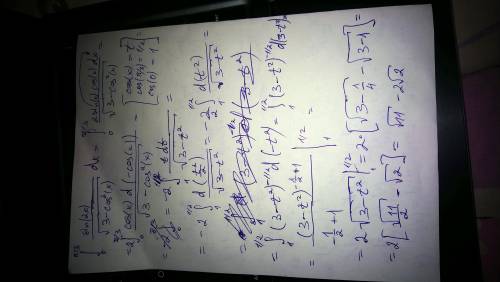 ∫₀^{π/3} sin(2x)/√(3-cos²(x)) dx = ∫₀^{π/3} 2sin(x)cos(x)dx/√(3-cos²(x)) =
= 2∫₀^{π/3} cos(x) d(-cos(x))/√(3-cos²(x)) = [cos(x)=t; cos(π/3)=1/2; cos(0)=1] =
= -2 ∫₁^{1/2} t dt/√(3-t²) =
= -2 ∫₁^{1/2} d(t²/2)/√(3-t²) = -2/2 ∫₁^{1/2} d(t²)/√(3-t²) =
= ∫₁^{1/2} (3-t²)^{-1/2} d(-t²) = ∫₁^{1/2} (3-t²)^{-1/2} d(3-t²) =
= (3-t²)^{-1/2+1}/(-1/2+1) |₁^{1/2} =
= 2√(3-t²) |₁^{1/2} = 2·[√(3-1/4) - √(3-1)] =
= 2[√11/2 - √2] = √11 - 2√2